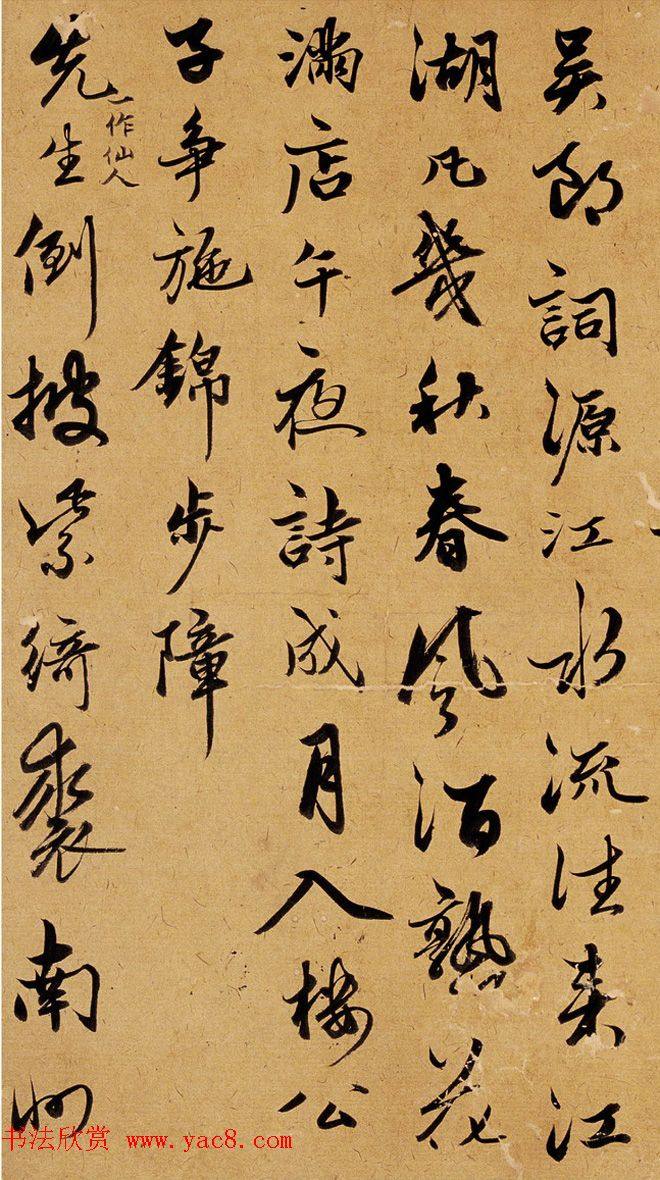 吴郎詞源江水流往来江
湖凡幾秋春風酒熟花
滿店午夜詩成月入樓公
子争施錦步障
先生倒披紫綺裘南州
一作仙人
书法欣赏 www.yac8.com